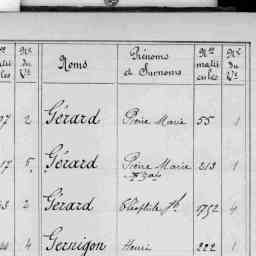 Nos matricules Nº du Vº Noms Prénoms et Surnoms Nos matricules Nº du Vº
97 2 Gérard Pierre Marie 55 1
17 5 Gérard Pierre Marie 213 1
3 2 Gérard Théophile 1752 4
4 Gernigon Henri 222 1